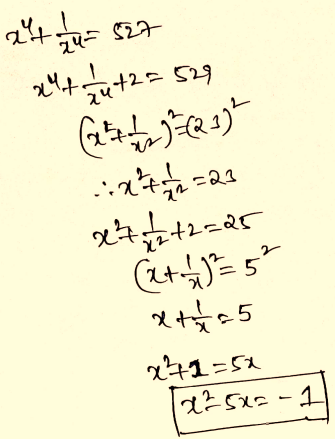 x⁴ + 1/x⁴ = 527
x⁴ + 1/x⁴ + 2 = 529
(x² + 1/x²)² = (23)²
∴ x² + 1/x² = 23
x² + 1/x² + 2 = 25
(x + 1/x)² = 5²
x + 1/x = 5
x² + 1 = 5x
x² - 5x = - 1